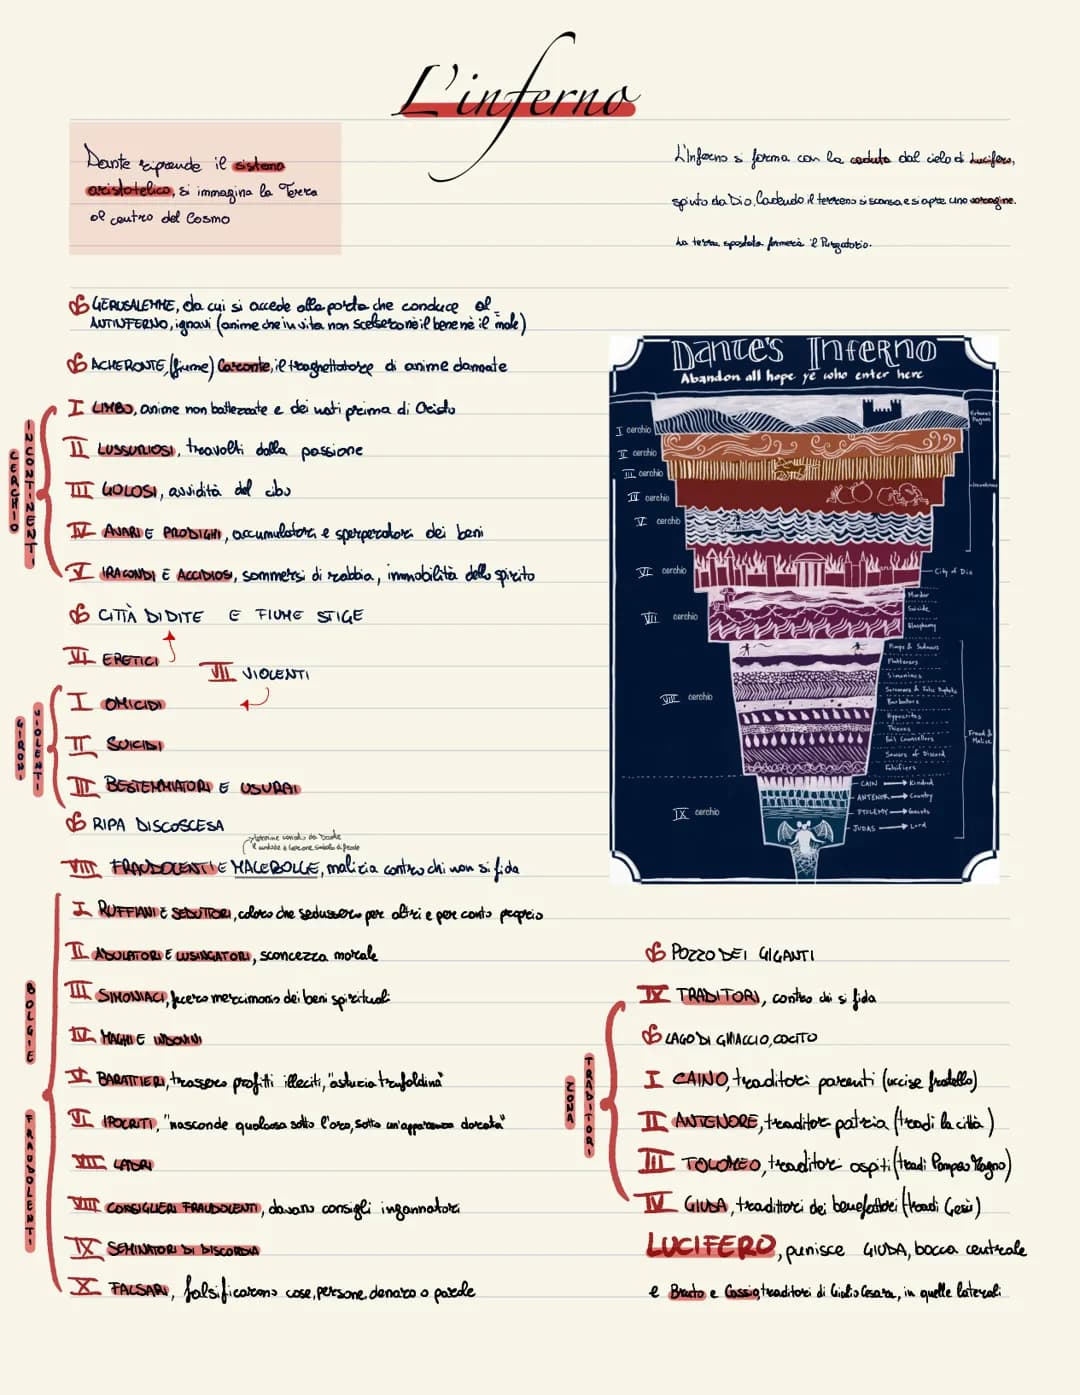 L'inferno
Dante riprende il sistema
aristotelico, si immagina la Terra
al centro del Cosmo
L'Inferno si forma con la caduta dal cielo di Lucifero,
spinto da Dio. Cadendo il terreno si scansa e si apre una voragine.
La terra spostata formerà il Purgatorio.
GERUSALEMME, da cui si accede alla porta che conduce al
ANTINFERNO, ignavi (anime che in vita non scelsero nè il bene nè il male)
ACHERONTE, (fiume) Caronte, il traghettatore di anime dannate
CERCHIO
INCONTINENTI
I LIMBO, anime non battezzate e dei nati prima di Cristo
II LUSSURIOSI, travolti dalla passione
III GOLOSI, avidità del cibo
IV AVARI E PRODIGHI, accumulatori e sperperatori dei beni
V IRACONDI E ACCIDIOSI, sommersi di rabbia, immobilità dello spirito
CITTÀ DI DITE E FIUME STIGE
VI ERETICI
VII VIOLENTI
GIRONI
VIOLENTI
I OMICIDI
II SUICIDI
III BESTEMMIATORI E USURAI
RIPA DISCOSCESA
termine coniato da Dante
il custode è Gerione simbolo di frode
VIII FRAUDOLENTI E MALEBOLGE, malizia contro chi non si fida
BOLGIE
FRAUDOLENTI
I RUFFIANI E SEDUTTORI, coloro che sedussero per altri e per conto proprio
II ADULATORI E LUSINGATORI, sconcezza morale
III SIMONIACI, fecero mercimonio dei beni spirituali
IV MAGHI E INDOVINI
V BARATTIERI, trassero profitti illeciti, "astuzia truffaldina"
VI IPOCRITI, "nasconde qualcosa sotto l'oro, sotto un'apparenza dorata"
VII LADRI
VIII CONSIGLIERI FRAUDOLENTI, davano consigli ingannatori
IX SEMINATORI DI DISCORDIA
X FALSARI, falsificarono cose, persone, denaro o parole
Dante's Inferno
Abandon all hope ye who enter here
I cerchio
II cerchio
III cerchio
IV cerchio
V cerchio
VI cerchio
VII cerchio
VIII cerchio
IX cerchio
Virtuous
Pagans
Incontinence
City of Dis
Murder
Suicide
Blasphemy
Pimps & Seducers
Flatterers
Simoniacs
Sorcerers & False Prophets
Barbators
Hypocrites
Thieves
Evil Counsellors
Sowers of Discord
Falsifiers
Fraud &
Malice
CAIN → Kindred
ANTENOR → Country
PTOLEMY → Guests
JUDAS → Lord
POZZO DEI GIGANTI
IX TRADITORI, contro chi si fida
LAGO DI GHIACCIO, COCITO
ZONA
TRADITORI
I CAINO, traditori parenti (uccise fratello)
II ANTENORE, traditori patria (tradì la città)
III TOLOMEO, traditori ospiti (tradì Pompeo Magno)
IV GIUDA, tradittori dei benefattori (tradì Gesù)
LUCIFERO, punisce GIUDA, bocca centrale
e Bruto e Cassio, traditori di Giulio Cesare, in quelle laterali